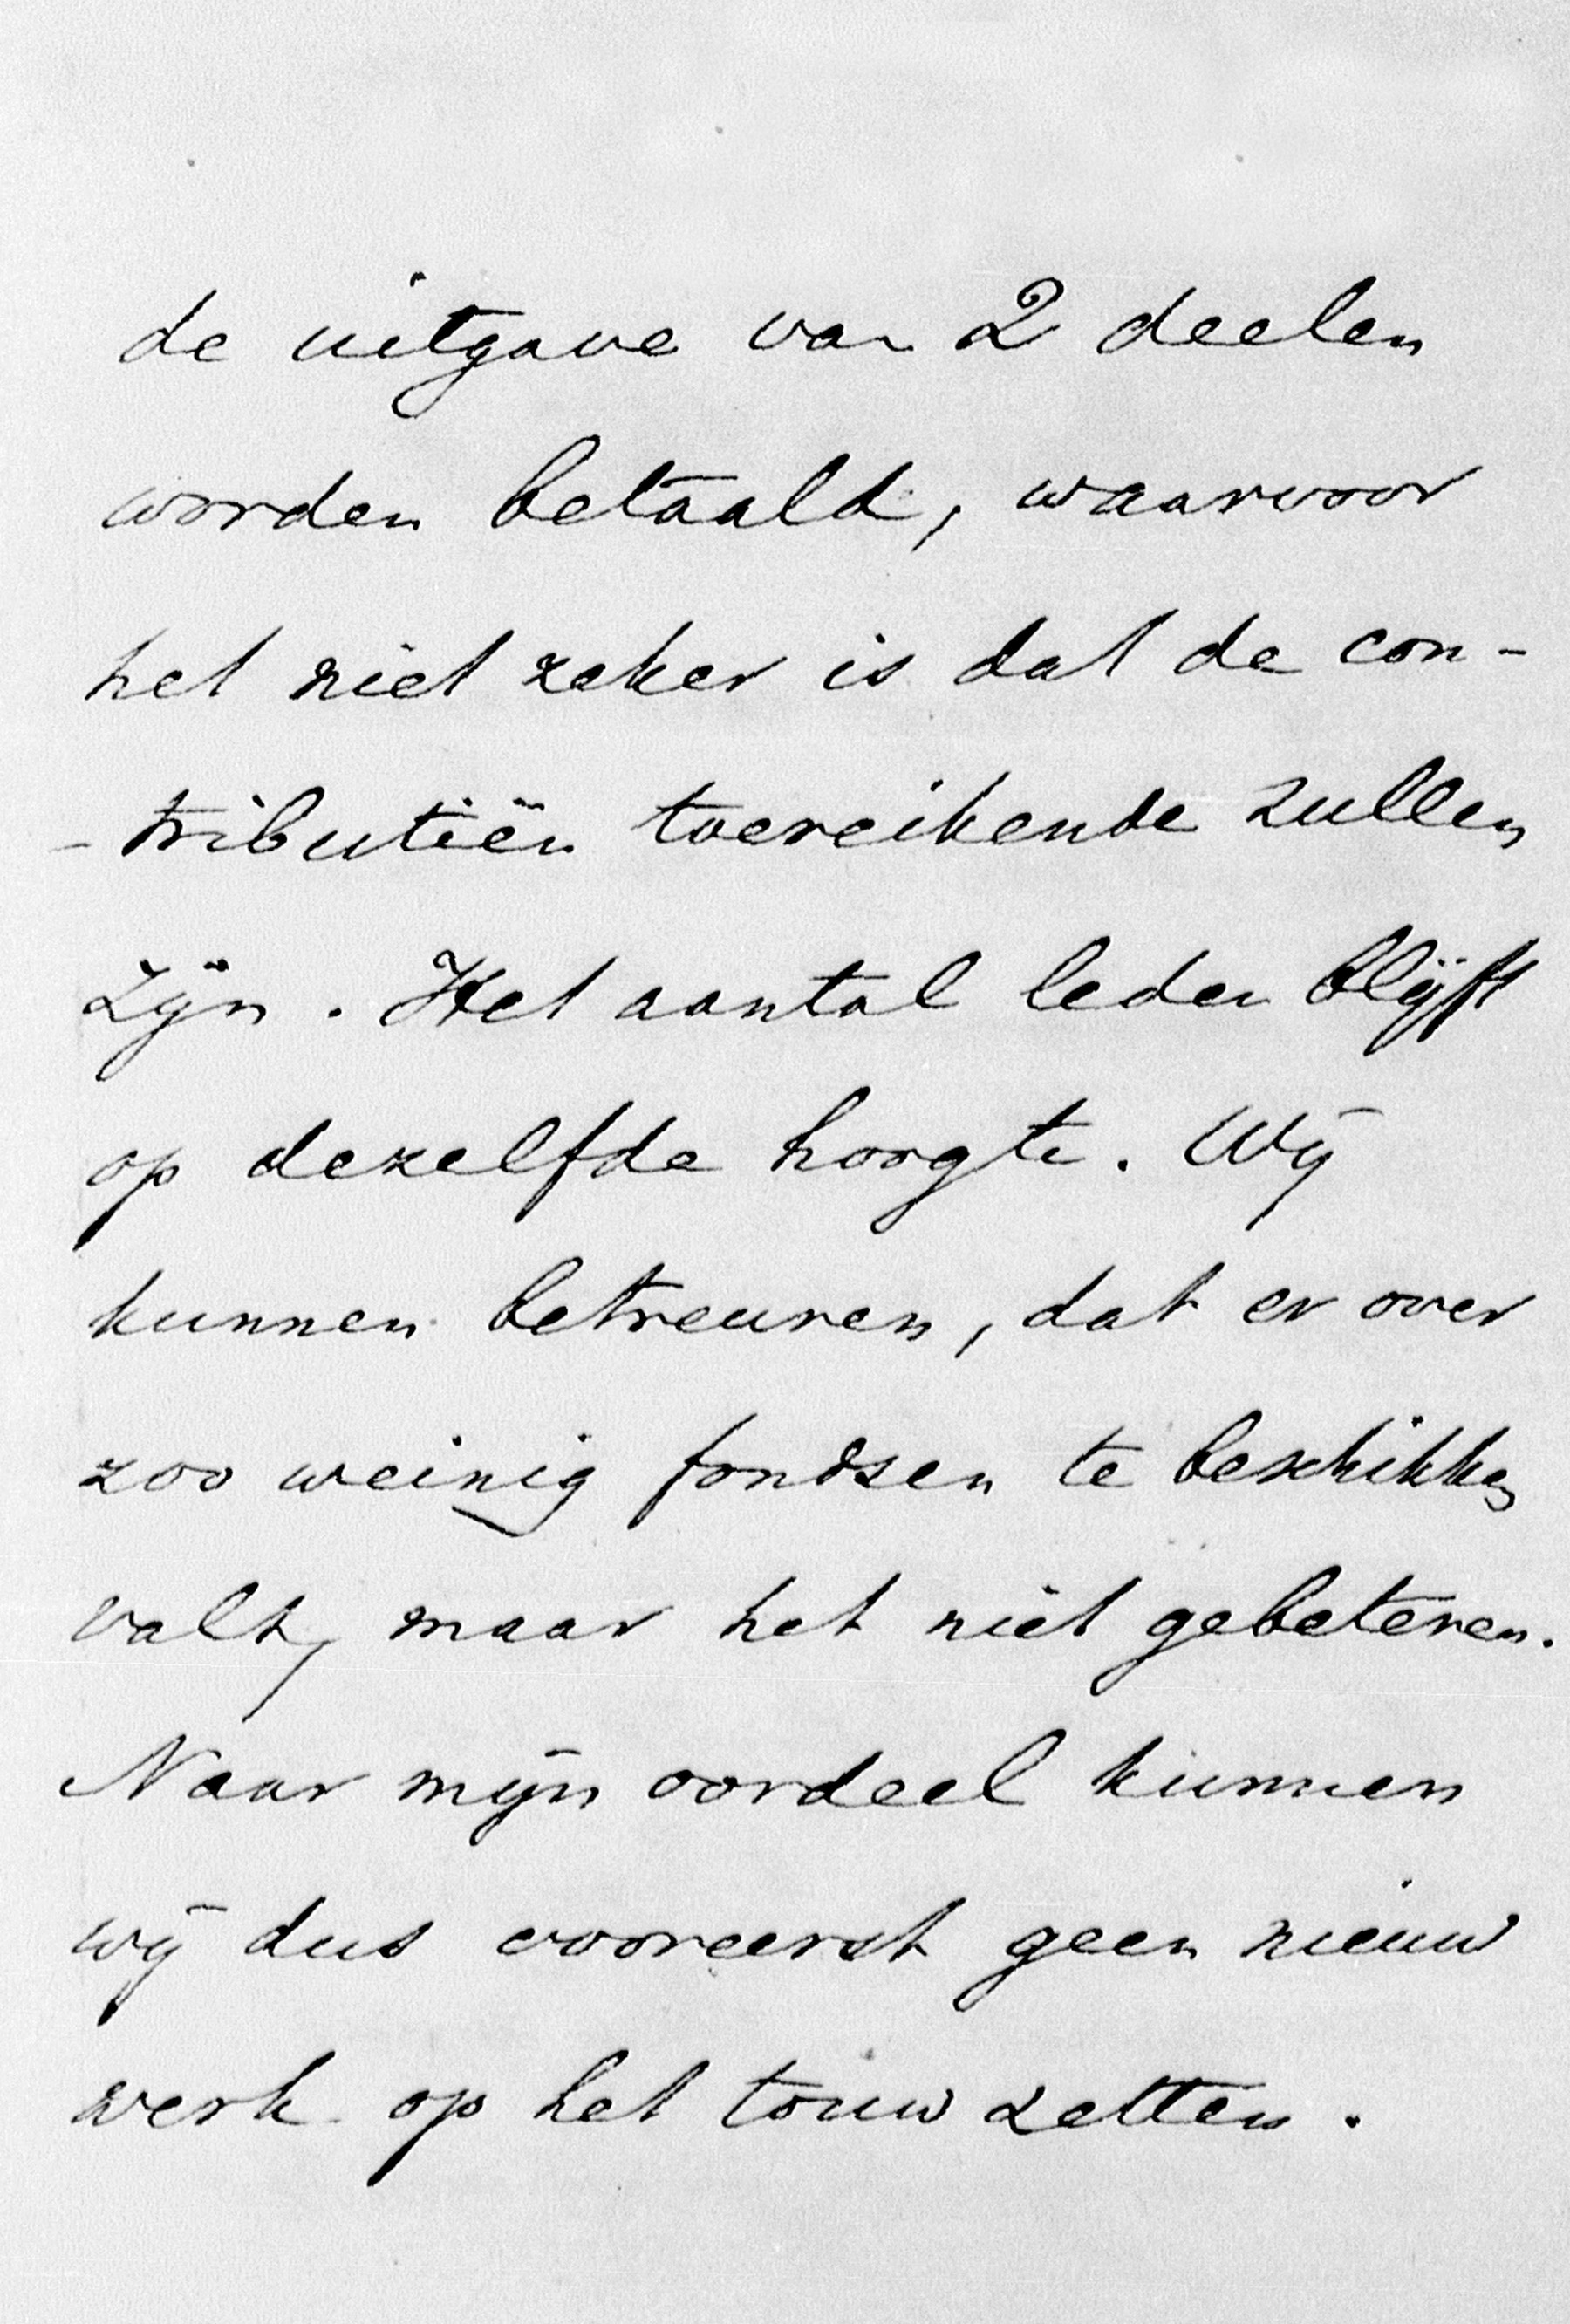 de uitgave van 2 deelen
worden betaald, waarvoor
het niet zeker is dat de con-
-tributiën toereikende zullen
zijn. Het aantal leden blijft
op dezelfde hoogte. Wij
kunnen betreuren, dat er over
zoo weinig fondsen te beschikken
valt, maar het niet gebeteren.
Naar mijn oordeel kunnen
wij dus vooreerst geen nieuw
werk op het touw zetten.